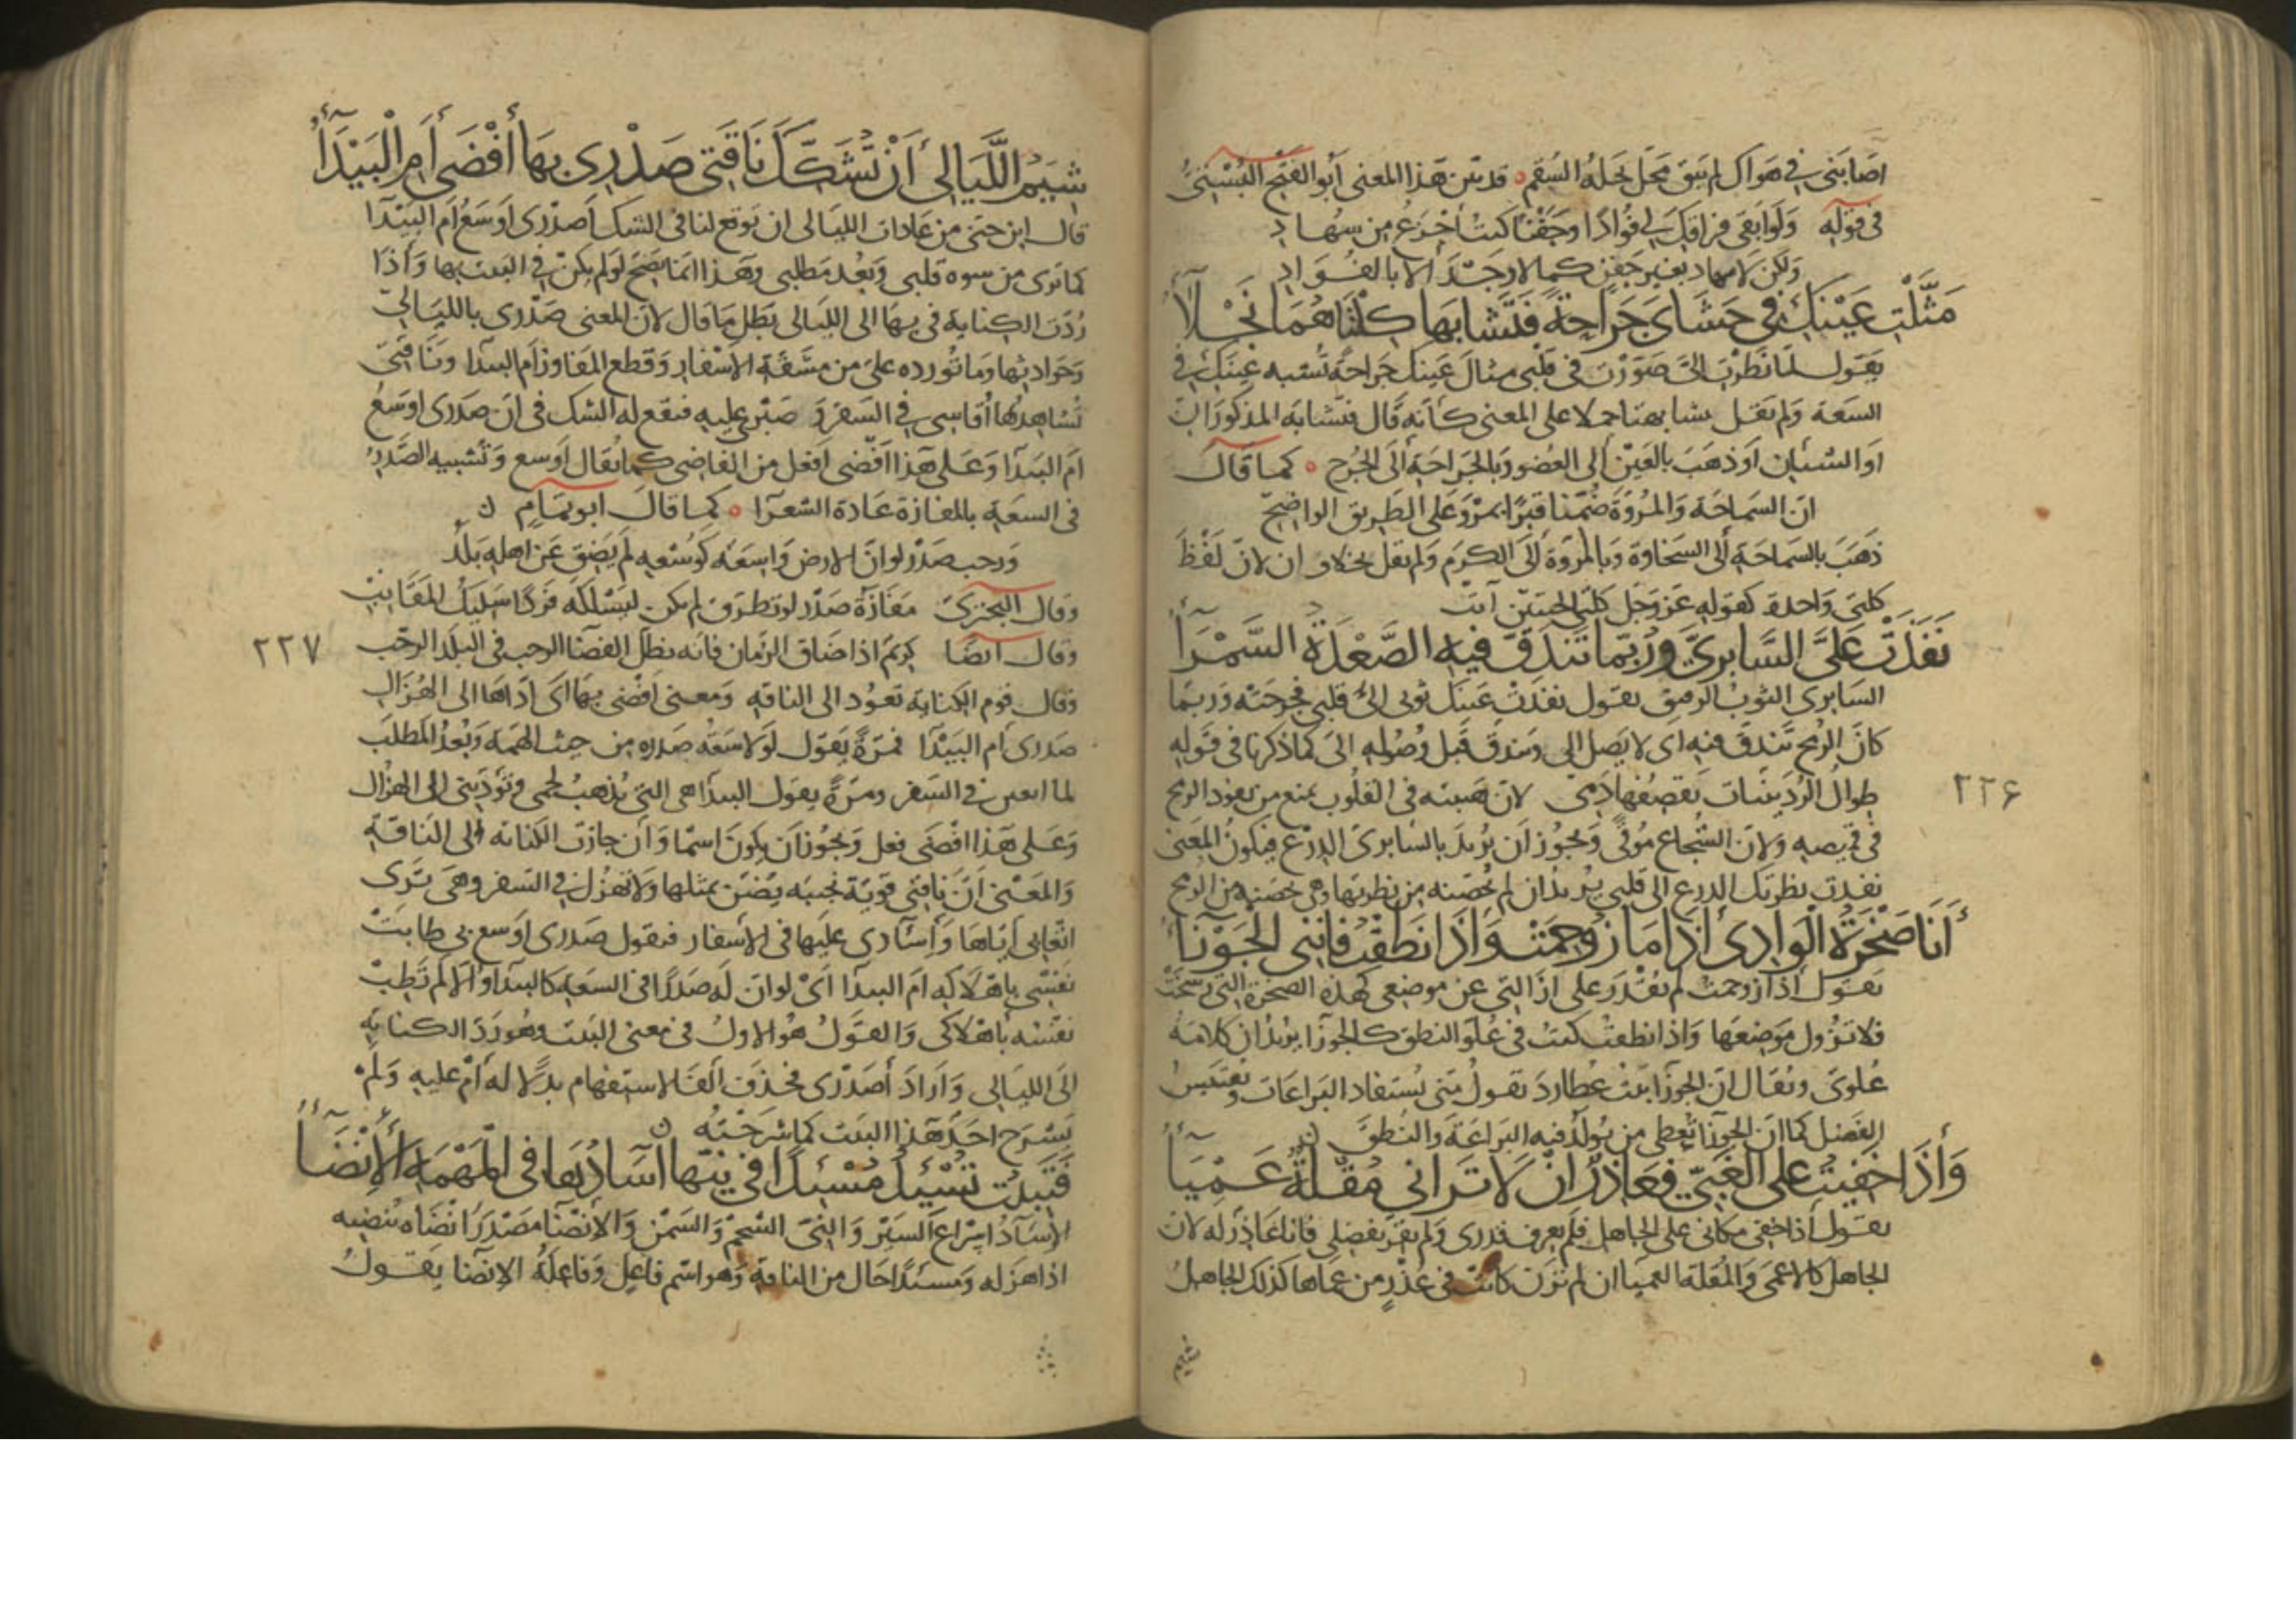 اصابتى فى هواك لم يبق محل يحله السقم ه قد بين هذا المعنى ابو الفتح البستى
فى قوله ولو ابقى فراقك لى فؤادا وجفنا كنت اجزع من سهاد
ولكن لا سهاد بغير جفن كما لا وجد الا بالفؤاد
مَثَّلْتِ عَيْنَكِ فى حَشَاىَ جَرَاحَةً فَتَشَابَها كِلْتَاهُمَا نَجْلَاءُ
يقول لما نظرت الىّ صوّرت فى قلبى مثال عينك جراحة تشبه عينك فى
السعة ولم يقل تشابهتا حملا على المعنى كأنه قال فتشابه المذكوران
او الشيئان او ذهب بالعين الى العضو وبالجراحة الى الجرح ه كما قال
ان السماحة والمروّة ضمّنا قبرا بمرو على الطريق الواضح
ذهب بالسماحة الى السخاوة وبالمروة الى الكرم ولم يقل نجلاوان لان لفظ
كلتى واحدة كقوله عز وجل كلتى الجنتين آتت
نَفَذَتْ عَلَىَّ السَّابِرِىَّ وَرُبَّمَا تَنْدَقُّ فيهِ الصَّعْدَةُ السَّمْرَاءُ
السابرى الثوب الرقيق يقول نفذت عينك ثوبى الى قلبى فجرحته وربما
كان الرمح تندق فيه اى لا يصل الى وتندق قبل وصوله الى كما ذكرنا فى قوله
طوال الردينيات يقصفها دمى لان هيبته فى القلوب تمنع من نفوذ الرمح
فى قميصه ولان الشجاع موقى ويجوز ان يريد بالسابرى الدرع فيكون المعنى
نفذت نظرتك الدرع الى قلبى يريد ان لم تحصنه من نظرتها وهى حصنته من الرمح
أَنَا صَخْرَةُ الْوَادِى أَذَا مَا زُوحِمَتْ وَأَذَا نَطَقْتُ فَاننى الْجَوْزَاءُ
يقول اذا زوحمت لم يقدر على ازالتى عن موضعى كهذه الصخرة التى رسخت
فلا تزول موضعها واذا نطقت كنت فى علو النطق كالجوزا يريد ان كلامه
علوى ويقال ان الجوزا بنت عطارد تقول منى يستفاد البراعات ويقتبس
الفضل كما ان الجوزا تعطى من يولد فيه البراعة والنطق ن
وَأَذَا خَفِيتُ على الغَبىّ فَعَاذِرٌ انْ لا تَرَانى مُقْلَةٌ عَمْيَاءُ
يقول اذا خفى مكانى على الجاهل فلم يعرف قدرى ولم يقر بفضلى فانا عاذر له لان
الجاهل كالاعمى والمقلة العميا ان لم ترن كانت فى عذر من عماها كذلك الجاهل
شيم
٢٢۶
شِيَمُ اللَّيَالِى أَنْ تُشَكِّكَ نَاقَتِى صَدْرِى بِهَا أَفْضَى أَمِ الْبَيْدَاءُ
قال ابن جنى من عادات الليالى ان توقع لناقى الشك اصدرى اوسع ام البيدا
كما ترى من سوه قلبى وبعد مطلبى وهذا انما يصح لو لم يكن فى البيت بها وأذا
ردت الكناية فى بها الى الليالى بطل ما قال لان المعنى صدرى بالليالى
وحوادثها وما تورده على من مشقة الاسفار وقطع المفاوز ام البيدا وناقتى
تشاهدها أقاسى فى السفر و صبرى عليه فيقع له الشك فى ان صدرى اوسع
ام البيدا وعلى هذا افضى افعل من الفاضى كما يقال اوسع وتشبيه الصدر
فى السعة بالمفازة عادة الشعرا ه كما قال ابو تمام ن
ورحب صدر لو ان الارض واسعة كوسعه لم يضق عن اهله بلد
وقال البحترى مفازة صدر لو تطرق لم يكن ليسلكه فردا سليك المقانب
وقال ايضا كريم اذا ضاق الزمان فانه يظل الفضا الرحب فى البلد الرحب
وقال قوم الكناية تعود الى الناقة ومعنى افضى بها اى ادّاها الى الهزال
صدرى ام البيدا فمرّة يقول لولا سعة صدره من حيث الهمة وبعد المطلب
لما اتعبنى فى السفر ومرّة يقول البيدا هى التى تذهب لحمى وتؤدينى الى الهزال
وعلى هذا افضى فعل ويجوز ان يكون اسما وان جازت الكناية الى الناقة
والمعنى ان ناقتى قوية نجيبة يضن بمثلها ولا تهزل فى السفر وهى ترى
اتعابى اياها وإسآدى عليها فى الاسفار فيقول صدرى اوسع بى طابت
نفسى باهلاكه ام البيدا اى لو ان له صدرا فى السعة كالبيدا والا لم تطب
نفسه باهلاكى والقول هو الاول فى معنى البيت وهو رد الكناية
الى الليالى واراد أصدرى فحذف الف الاستفهام بدلالة أم عليه ولم
يشرح احد هذا البيت كما شرحته ن
فَتَبِيتُ تُسْئِدُ مُسْئِدًا فى نِيِّها اسآدَهَا فى الْمَهْمَهِ الْأِنْضَاءُ
الاسآد اسراع السير والنى الشحم والسمن والانضا مصدر انضاه ينضيه
اذا هزله ومسئدا حال من الناقة وهو اسم فاعل وفاعله الانضا يقول
٢٢٧